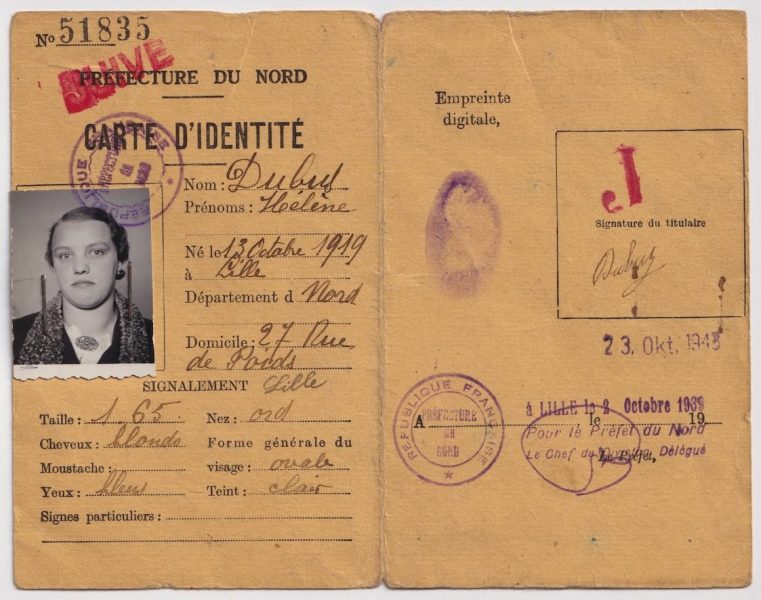 No 51835
JUIVE
PRÉFECTURE DU NORD
CARTE D'IDENTITÉ
Nom : Dubus
Prénoms : Hélène
Né le 13 Octobre 1919
à Lille
Département d Nord
Domicile : 27 Rue
de Poids
Lille
SIGNALEMENT
Taille : 1 65 Nez : ord
Cheveux : blonds Forme générale du
Moustache : visage : ovale
Yeux : bleus Teint : clair
Signes particuliers :
Empreinte
digitale,
J
Signature du titulaire
23. Okt. 1943
REPUBLIQUE FRANÇAISE
PRÉFECTURE
DU
NORD
à LILLE le 2 Octobre 1939
A le 19
Pour le Préfet du Nord
Le Chef de Délégué
Le Préfet,